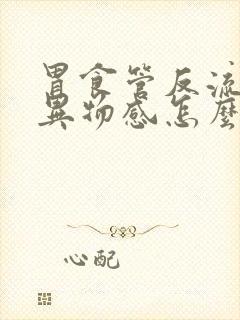 胃食管反流
異物感怎麼
心配